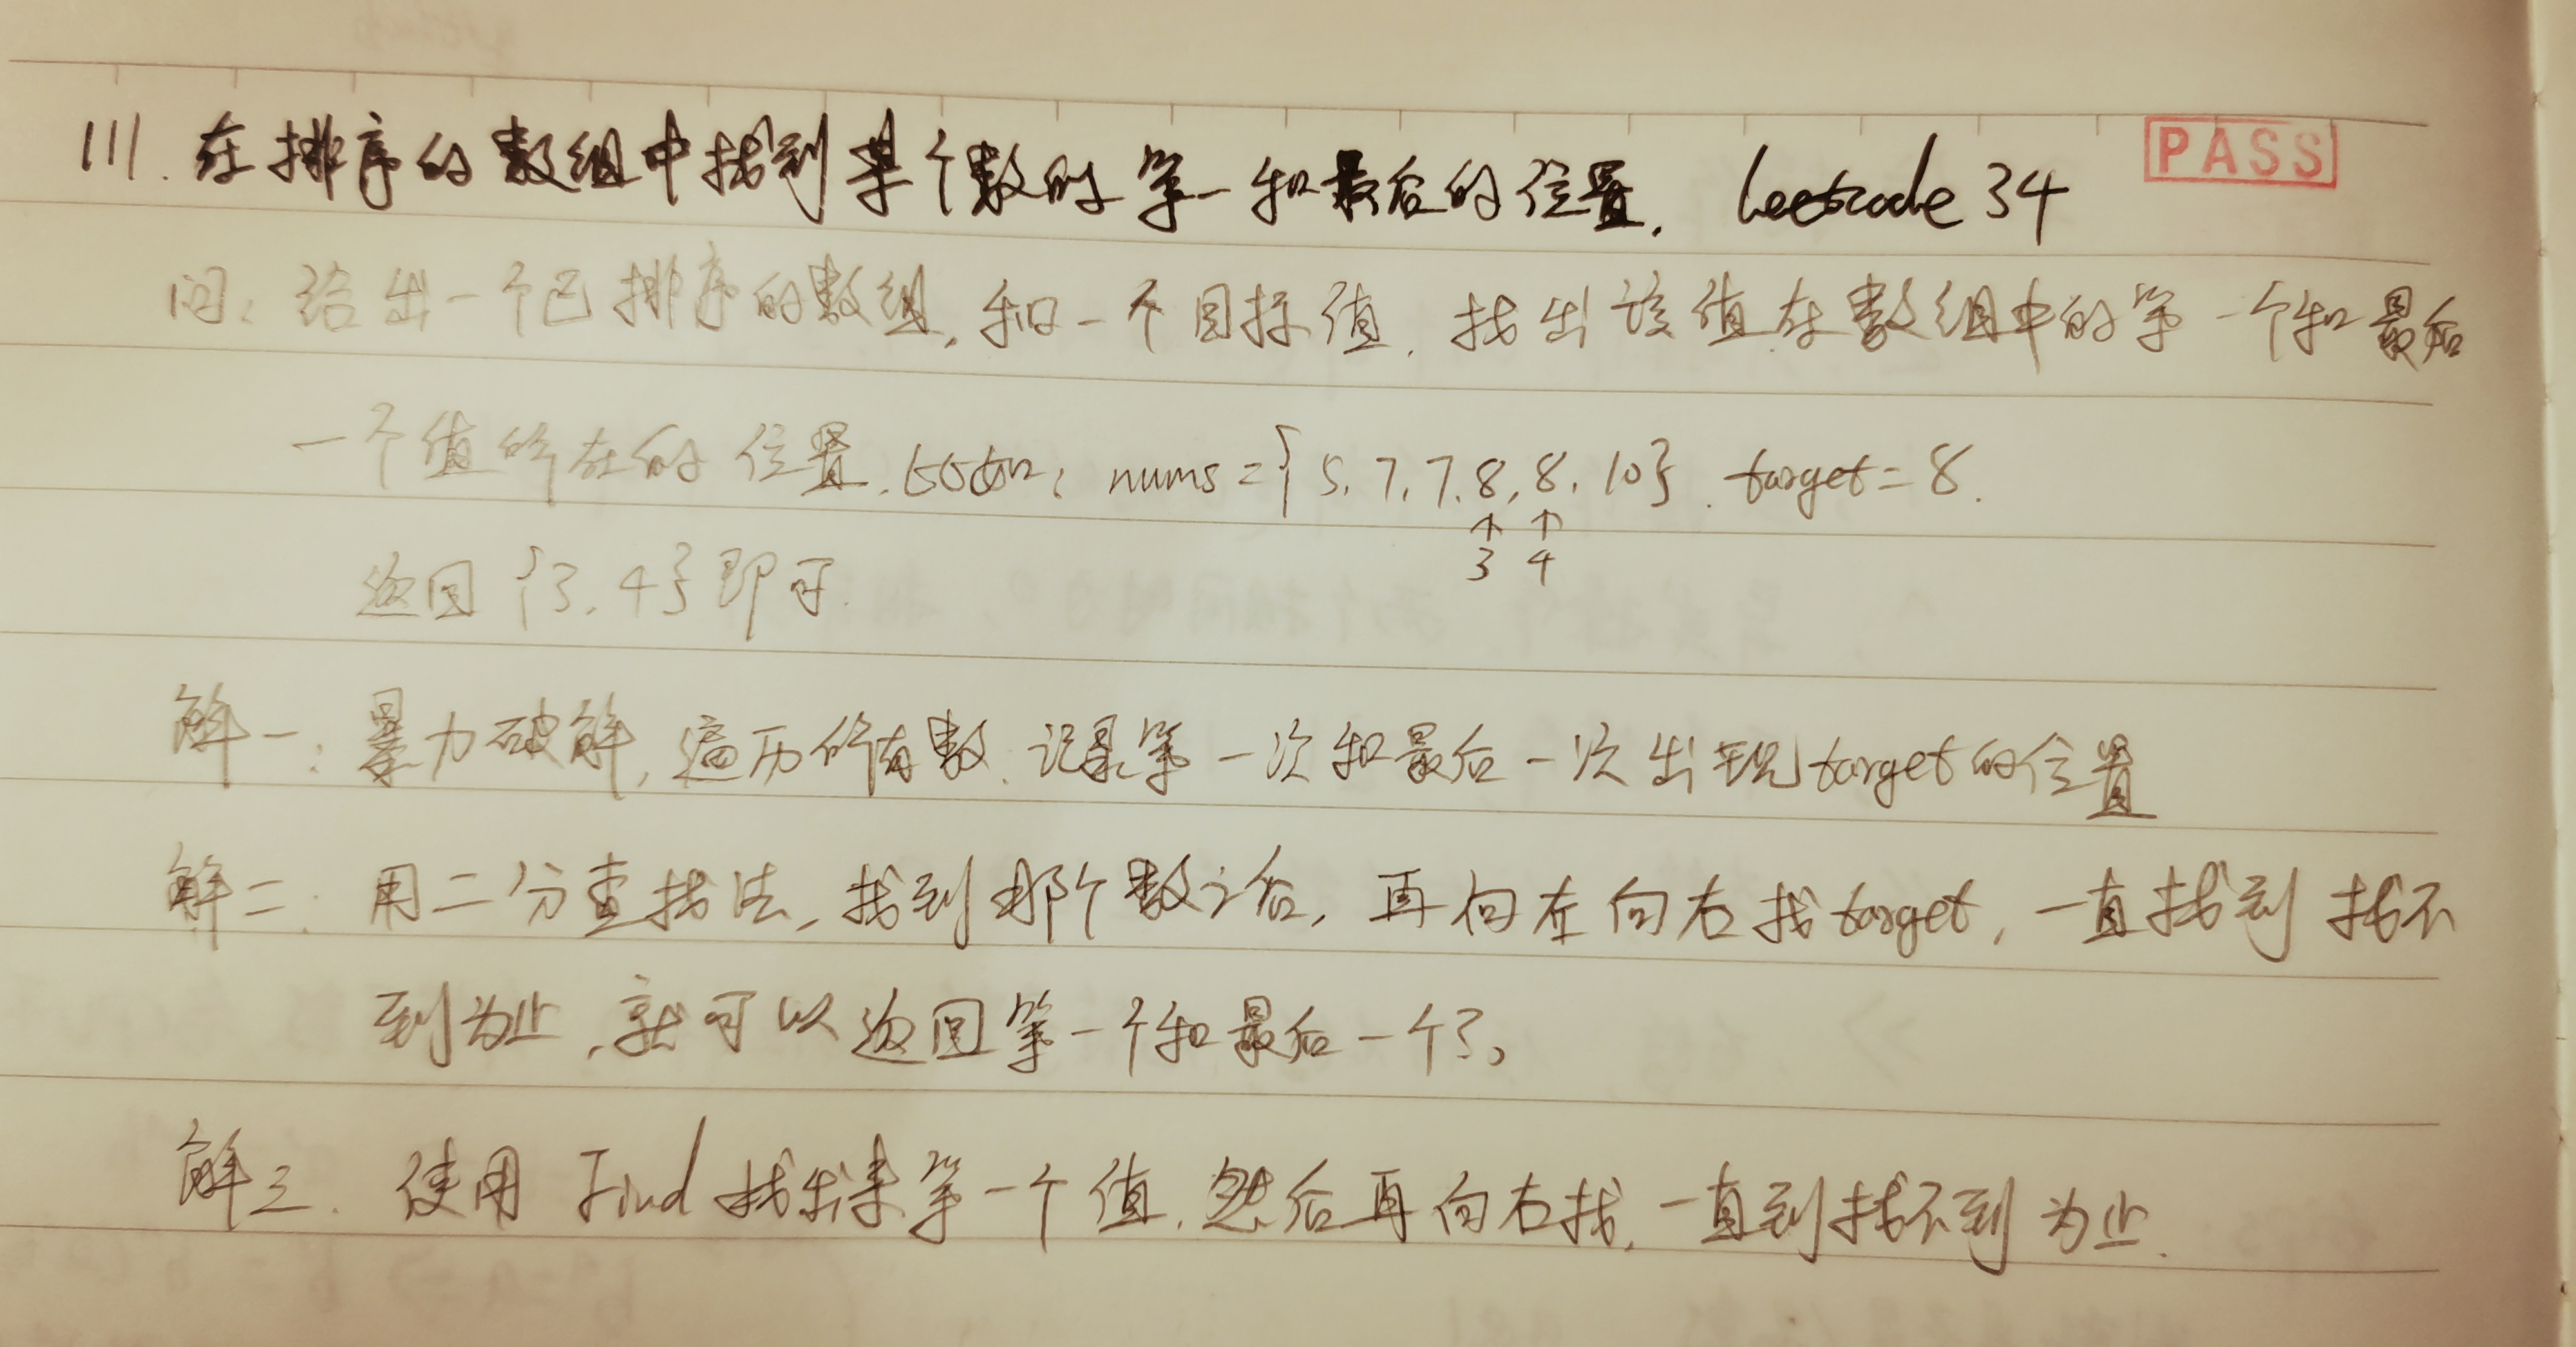 111. 在排序的数组中找到某个数的第一和最后的位置. leetcode 34 PASS
问: 给出一个已排序的数组, 和一个目标值, 找出该值在数组中的第一个和最后
一个值所在的位置, 比如: nums = {5, 7, 7, 8, 8, 10}. target = 8.
↑ ↑
3 4
返回 {3, 4} 即可.
解一: 暴力破解, 遍历所有数, 记录第一次和最后一次出现target的位置
解二: 用二分查找法, 找到那个数之后, 再向左向右找target, 一直找到找不
到为止, 就可以返回第一个和最后一个了。
解三. 使用 Find 找出来第一个值, 然后再向右找, 一直到找不到为止.